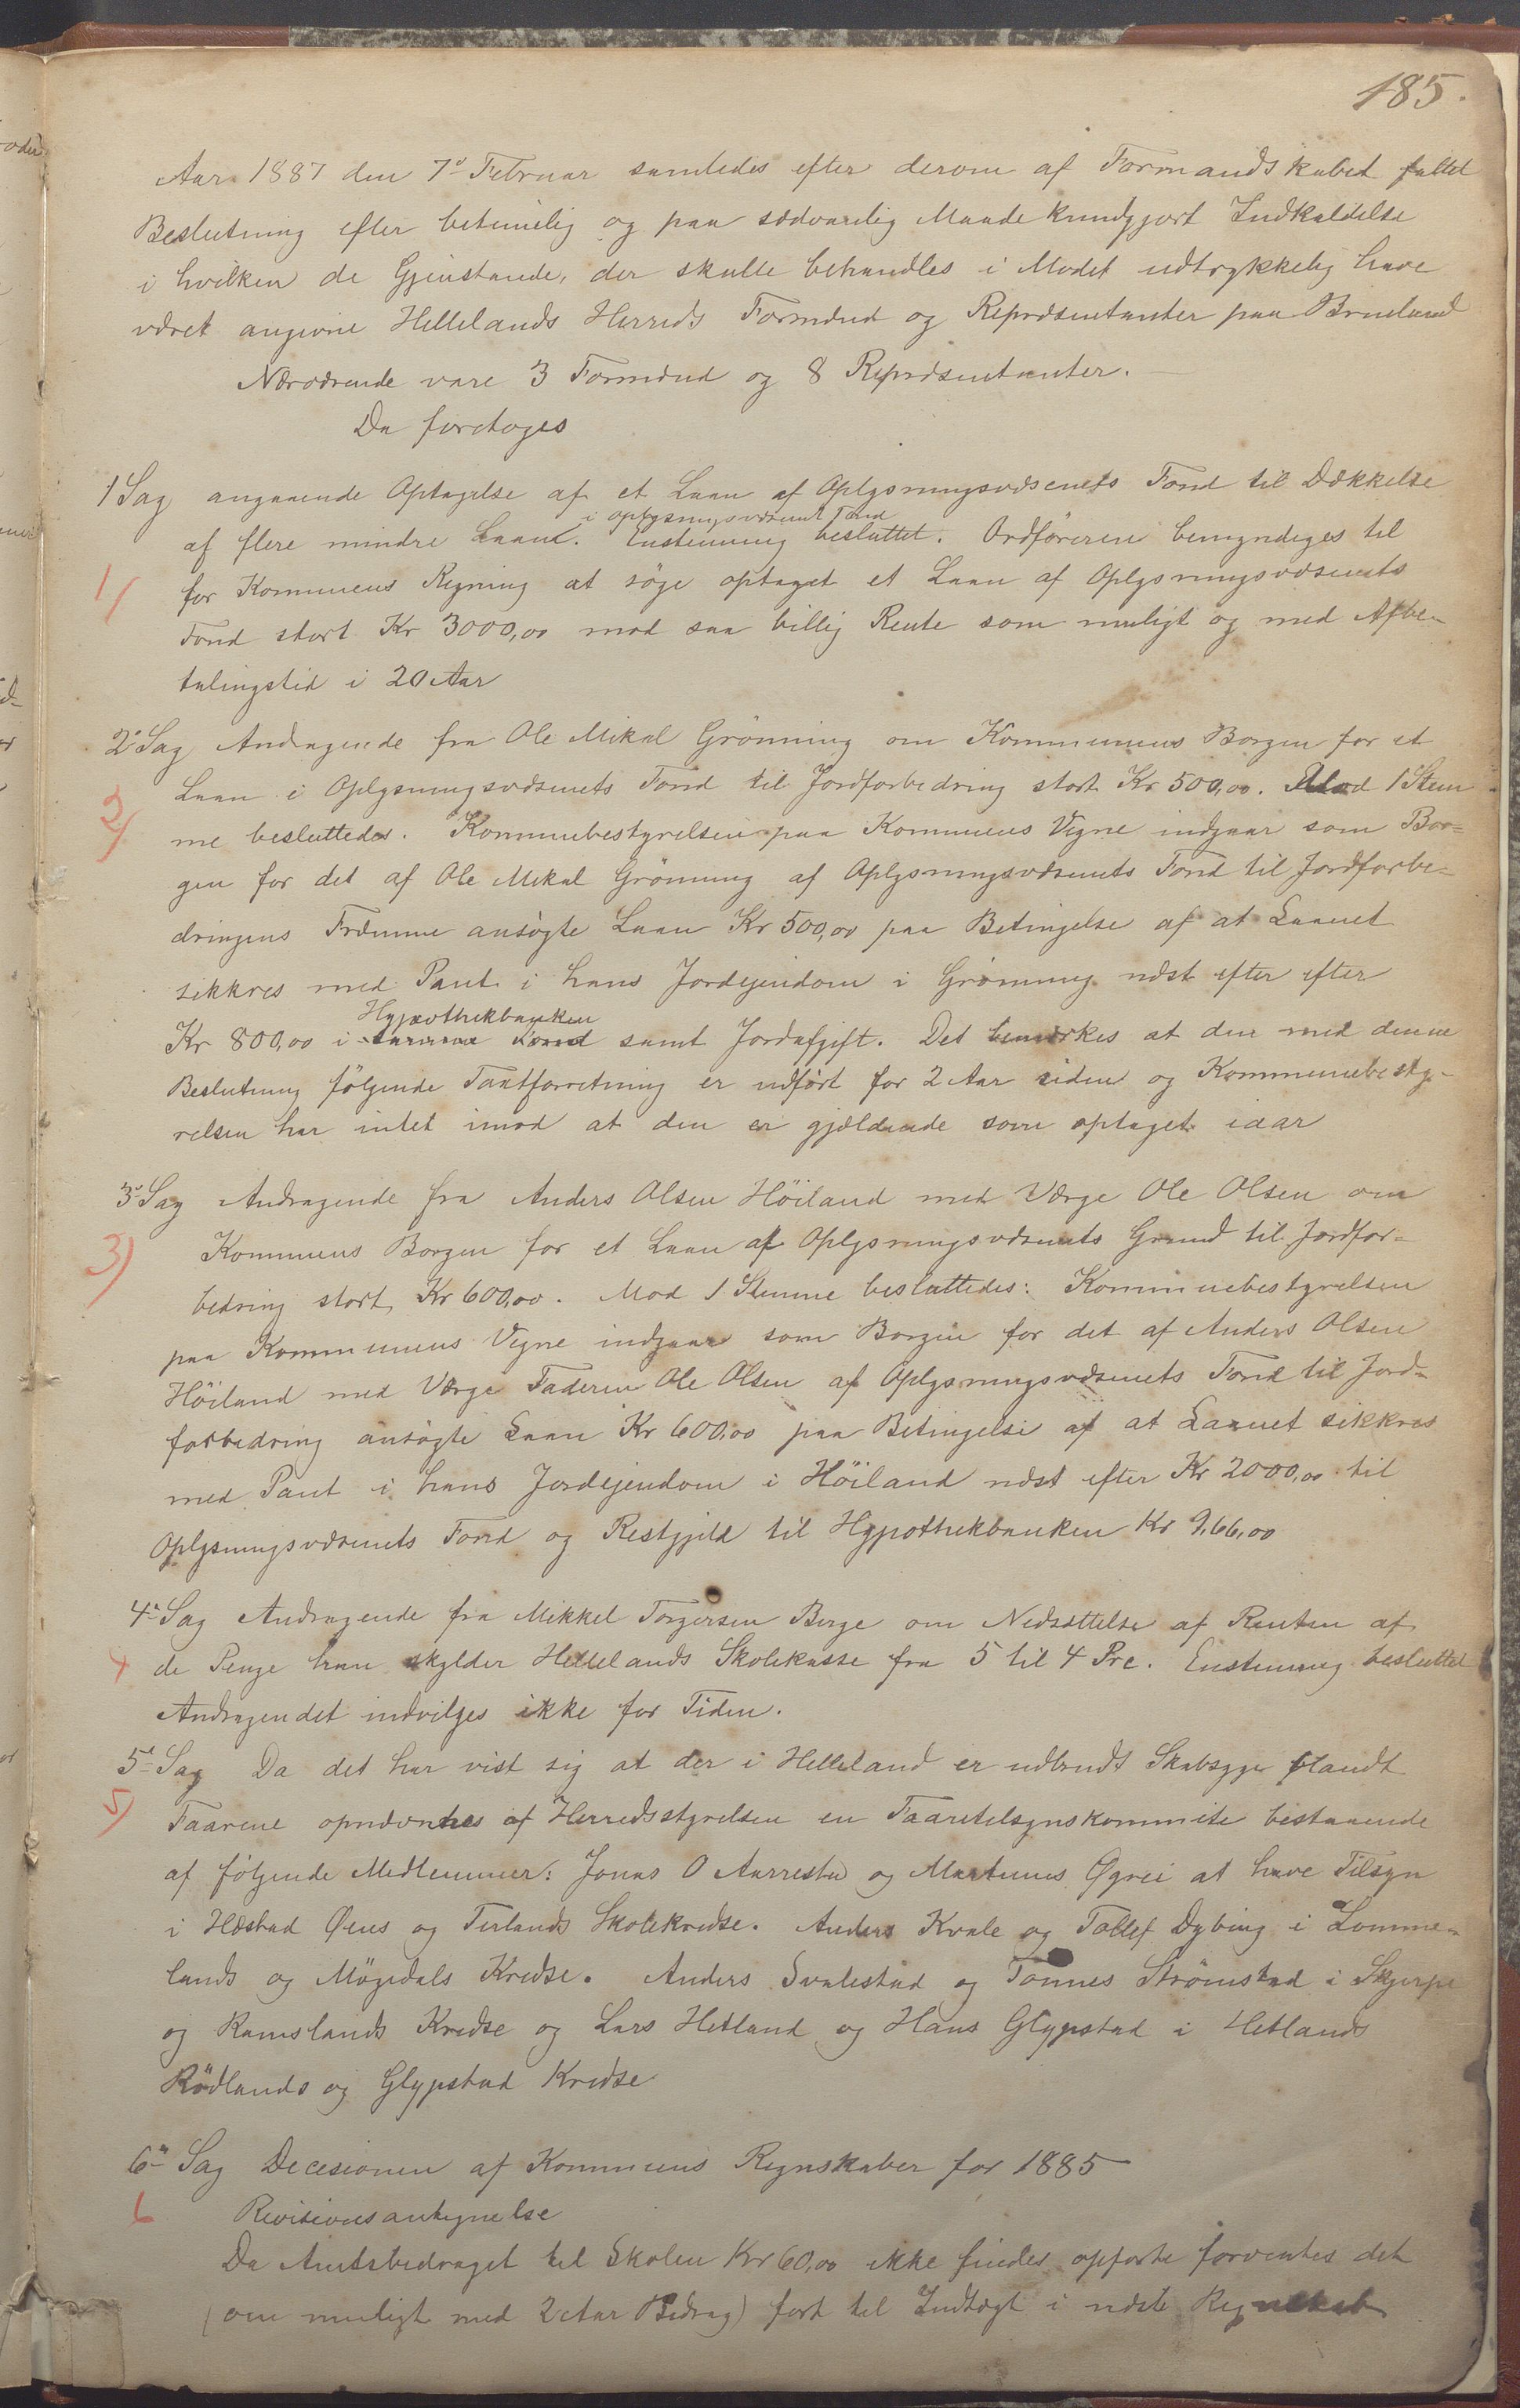 185.
Aar 1887 den 7de Februar samledes efter derom af Formandskabet fattet
Beslutning efter betimelig og paa sædvanlig Maade kundgjort Indkaldelse
i hvilken de Gjenstande, der skulle behandles i Mødet udtrykkelig have
været angivne Hellelands Herreds Formænd og Repræsentanter paa Brueland
Nærværende vare 3 Formænd og 8 Repræsentanter.
Da foretoges
1 Sag angaaende Optagelse af et Laan af Oplysningsvæsenets Fond til Dækkelse
i Oplysningsvæsenets Fond
af flere mindre Laan. Enstemmig besluttet. Ordføreren bemyndiges til
1/ for Kommunens Regning at søge optaget et Laan af Oplysningsvæsenets
Fond stort Kr 3000,00 mod saa billig Rente som muligt og med Afbe-
talingstid i 20 Aar
2den Sag Andragende fra Ole Mikal Grönning om Kommunens Borgen for et
Laan i Oplysningsvæsenets Fond til Jordforbedring stort Kr 500,00. Mod 1 Stem
2/ me besluttedes. Kommunebestyrelsen paa Kommunens Vegne indgaar som Bor=
gen for det af Ole Mikal Grönning af Oplysningsvæsenets Fond til Jordforbe-
dringens Fremme ansøgte Laan Kr 500,00 paa Betingelse af at Laanet
sikkres med Pant i hans Jordejendom i Grönning næst efter efter
Hypothekbanken
Kr 800,00 i samme Fond samt Jordafgift. Det bemærkes at den med denne
Beslutning følgende Taxtforretning er udført for 2 Aar siden og Kommunebesty-
relsen har intet imod at den er gjældende som optaget iaar
3die Sag Andragende fra Anders Olsen Höiland med Værge Ole Olsen om
3) Kommunens Borgen for et Laan af Oplysningsvæsenets Grund til Jordfor=
bedring stort Kr 600,00. Mod 1 Stemme besluttedes: Kommunebestyrelsen
paa Kommunens Vegne indgaar som Borgen for det af Anders Olsen
Höiland med Værge Faderen Ole Olsen af Oplysningsvæsenets Fond til Jord-
forbedring ansøgte Laan Kr 600,00 paa Betingelse af at Laanet sikkres
med Pant i hans Jordejendom i Höiland næst efter Kr 2000,00 til
Oplysningsvæsenets Fond og Restgjeld til Hypothekbanken Kr 966,00
4de Sag Andragende fra Mikkel Torgersen Berge om Nedsættelse af Renten af
4 de Penge han skylder Hellelands Skolekasse fra 5 til 4 Prc. Enstemmig besluttet
Andragendet indvilges ikke for Tiden.
5te Sag Da det har vist sig at der i Helleland er udbrudt Skabsyge blandt
5) Faarene opnævntes af Herredsstyrelsen en Faaretilsynskommite bestaaende
af følgende Medlemmer: Jonas O Aarrestad og Martinus Øgrei at have Tilsyn
i Hæstad Øens og Terlands Skolekredse. Anders Kvale og Tollef Dybing i Lomme-
lands og Mögedals Kredse. Anders Svalestad og Tønnes Strömstad i Skjerpe
og Ramslands Kredse og Lars Hetland og Hans Glypstad i Hetlands
Rödlands og Glypstad Kredse
6te Sag Decesionen af Kommunens Regnskaber for 1885
6 Revisionsantegnelse
Da Amtsbidraget til Skolen Kr 60,00 ikke findes opførte forventes det
(om muligt med 2 Aars Bidrag) ført til Indtægt i næste Regnskab